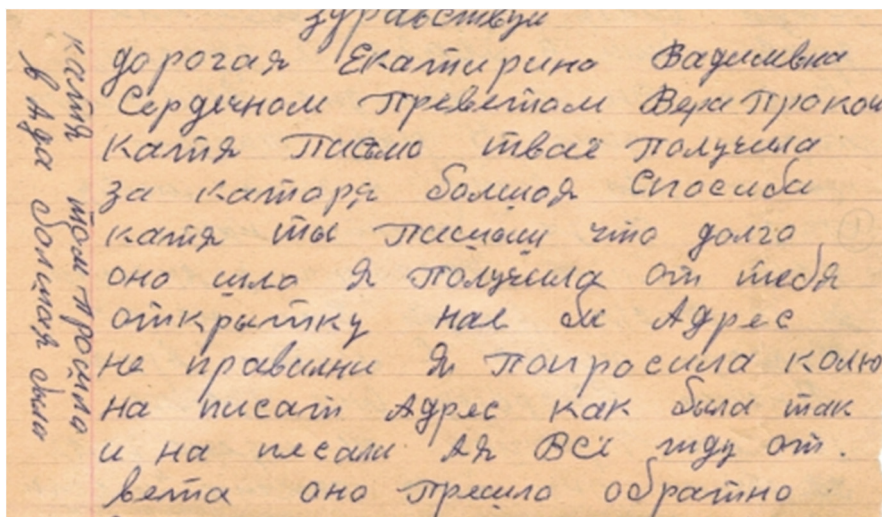 здравствуй
дорогая Екатирина Вадимвна
Сердечном Преветом Вера Прокоч
Катя Писмо тваё Получила
за каторя болшоя Спосиба
катя ты Пишыш что долго
оно шло Я Получила от тебя
открытку но Адрес
не правилни Я Попросила колю
на писат Адрес как была так
и на песали АЯ ВСё жду от.
вета оно Прешло обратно
катя том просила
в Ада болшая была